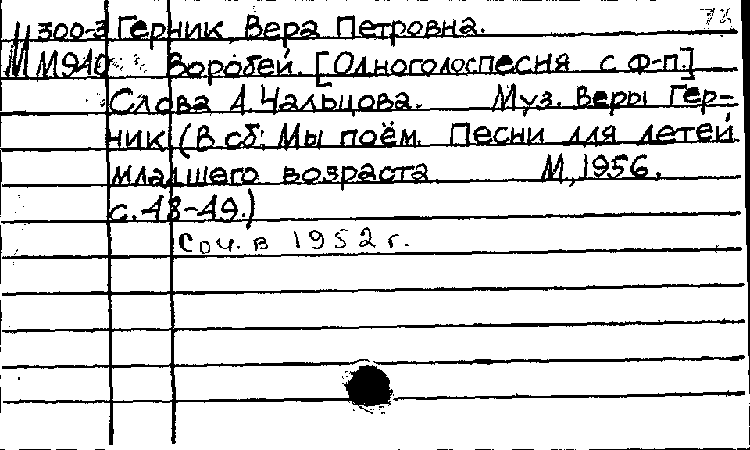 М 300-3 Герник, Вера Петровна.
М М940 Воробей. [Одноголос песня с ф-п.]
Слова А. Чальцова. Муз. Веры Гер-
ник (В сб: Мы поём. Песни для детей
младшего возраста М, 1956.
с. 48-49.)
Соч. в 1952 г.